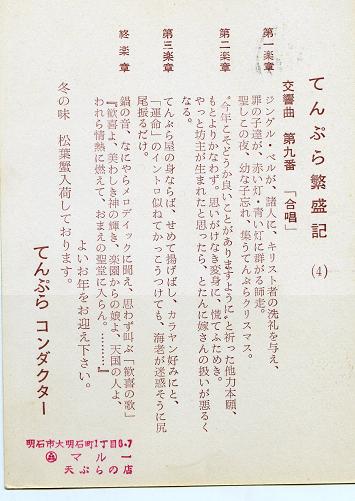 てんぷら繁盛記 (4)
交響曲 第九番 「合唱」
第一楽章
ジングル・ベルが、諸人に、キリスト者の洗礼を与え、
罪の子達が、赤い灯・青い灯に群がる師走。
聖しこの夜、幼な子忘れ、集うてんぷらクリスマス。
第二楽章
"今年こそどうか良いことがありますように"と祈った他力本願、
もとよりかなわず。思いがけなき変身に、慌てふためき。
やっと坊主が生まれたと思ったら、とたんに嫁さんの扱いが悪るく
なる。
第三楽章
てんぷら屋の身ならば、せめて揚げばし、カラヤン好みにと、
「運命」のイントロ似ねてかっこうつけても、海老が迷惑そうに尻
尾振るだけ。
終楽章
鍋の音、なにやらメロデイックに聞え、思わず叫ぶ「歓喜の歌」
『歓喜よ、美わしき神の輝き、楽園からの娘よ、天国の人よ、
われら情熱に燃えて、おまえの聖堂に入らん。………』
冬の味 松葉蟹入荷しております。
よいお年をお迎え下さい。
てんぷら コンダクター
明石市大明石町1丁目8-7
マルー
天ぷらの店